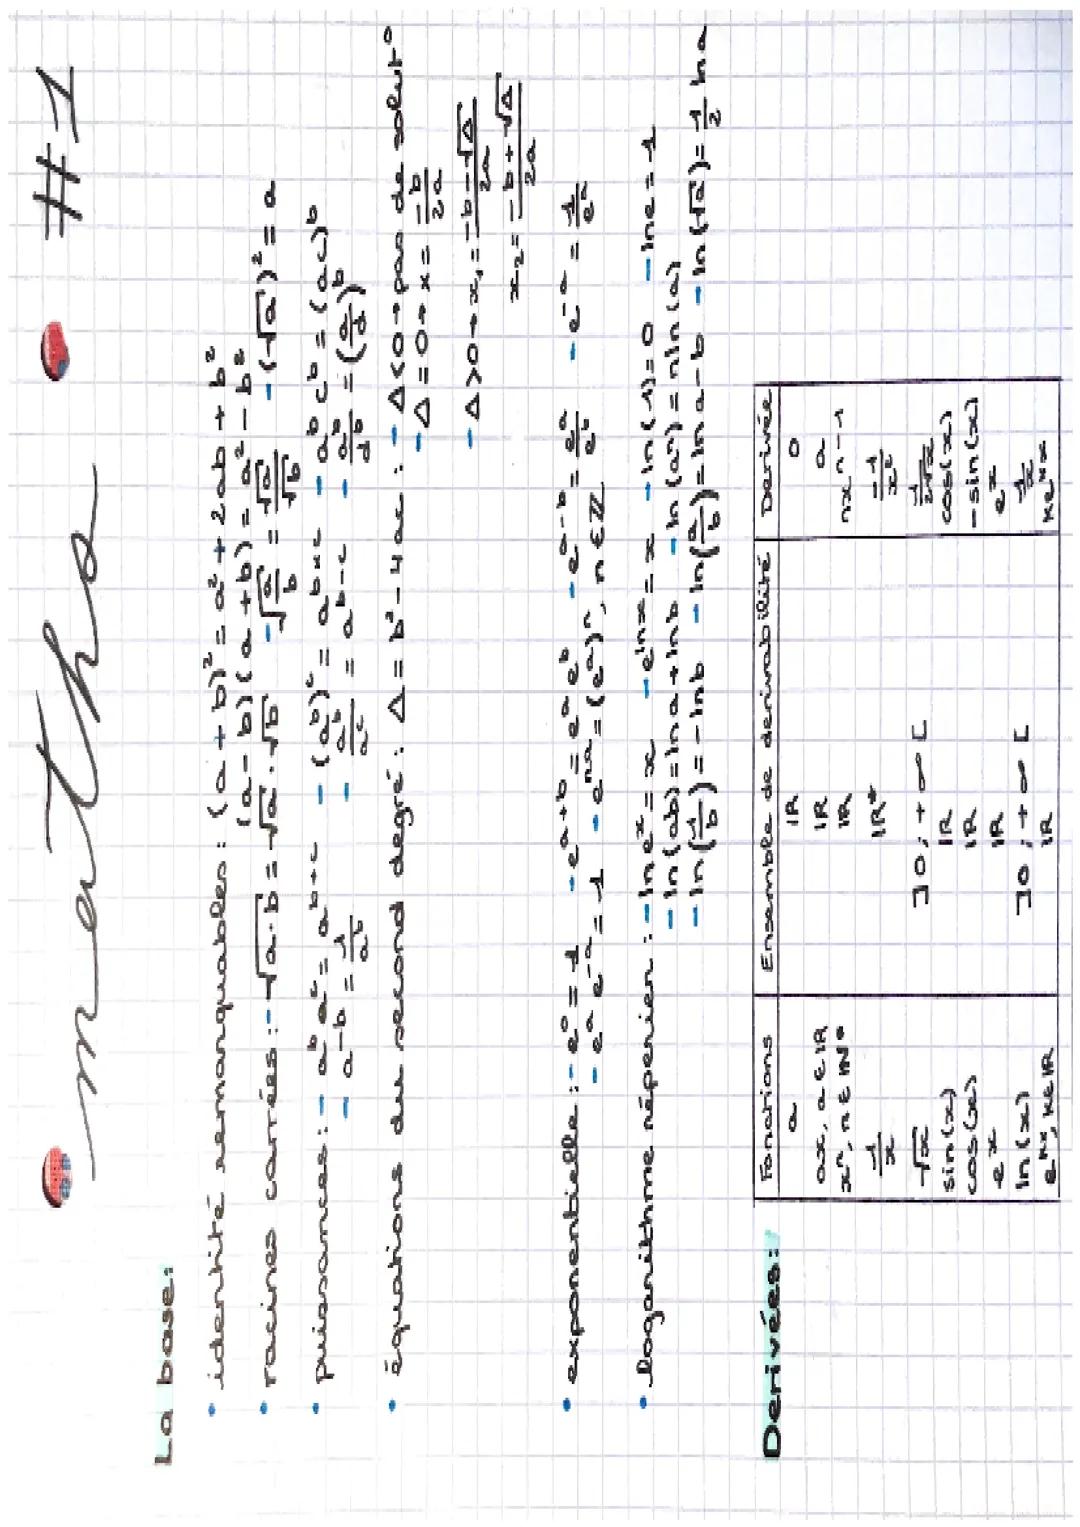 maths #1
La base:
• identité remarquables : (a + b)² = a² + 2ab + b²
(a - b)(a + b) = a² - b²
• racines carrées : - √a·b = √a · √b - √(a/b) = √a/√b - (√a)² = a
• puissances : - a^b a^c = a^(b+c) - (a^b)^c = a^(b×c) - a^b c^b = (ac)^b
- a^(-b) = 1/a^b - a^b/a^c = a^(b-c) - a^b/d^b = (a/d)^b
• équations du second degré : Δ = b² - 4ac : - Δ<0 → pas de solut°
- Δ = 0 → x = -b/2a
- Δ>0 → x₁ = (-b-√Δ)/2a
x₂ = (-b+√Δ)/2a
• exponentielle : - e⁰ = 1 - e^(a+b) = e^a e^b - e^(a-b) = e^a/e^b - e^(-a) = 1/e^a
- e^a e^(-a) = 1 - e^(na) = (e^a)^n, n ∈ ℤ
• logarithme népérien : - ln e^x = x - e^(ln x) = x - ln(1) = 0 - ln e = 1
- ln(ab) = ln a + ln b - ln(a^n) = n ln(a)
- ln(1/b) = -ln b - ln(a/b) = ln a - b - ln(√a) = 1/2 ln a
Derivées :
Fonctions Ensemble de derivabilité Derivée
a ℝ 0
ax, a ∈ ℝ ℝ a
x^n, n ∈ ℕ* ℝ nx^(n-1)
1/x ℝ* -1/x²
√x ]0 ; +∞[ 1/2√x
sin(x) ℝ cos(x)
cos(x) ℝ -sin(x)
e^x ℝ e^x
ln(x) ]0 ; +∞[ 1/x
e^(kx), k ∈ ℝ ℝ ke^(kx)